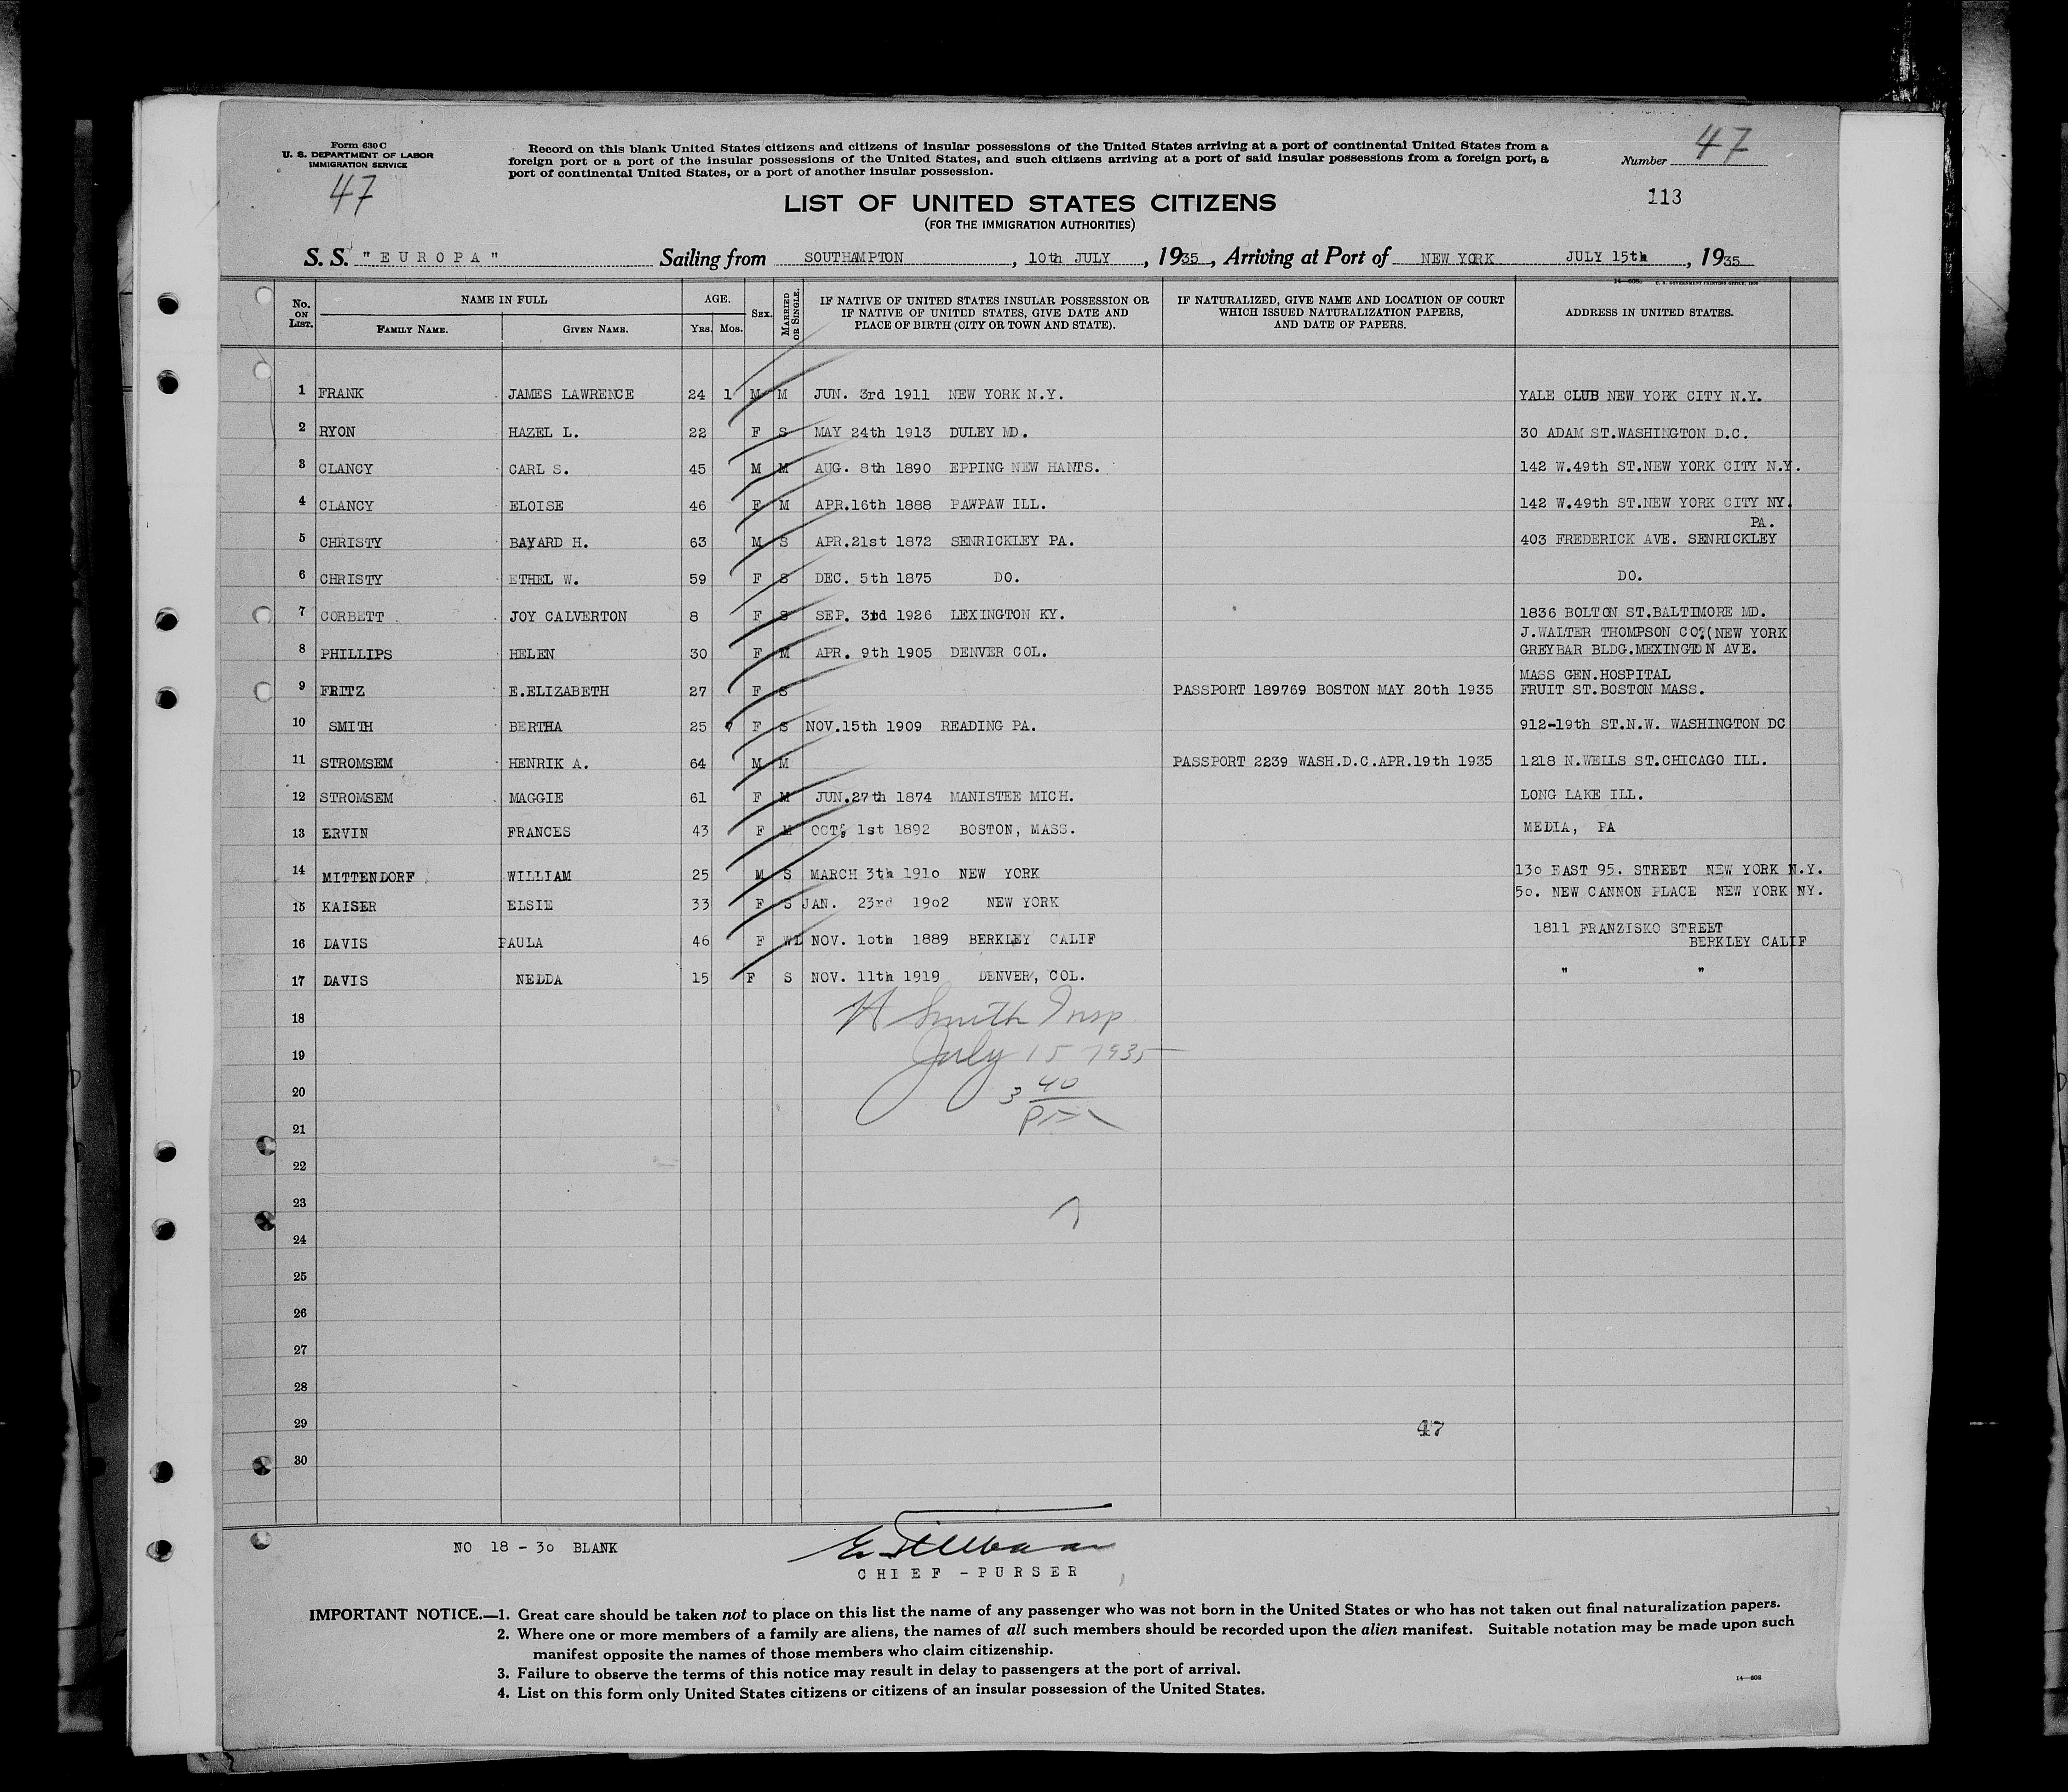 Form 630 C
U. S. DEPARTMENT OF LABOR
IMMIGRATION SERVICE
47
Record on this blank United States citizens and citizens of insular possessions of the United States arriving at a port of continental United States from a
foreign port or a port of the insular possessions of the United States, and such citizens arriving at a port of said insular possessions from a foreign port, a
port of continental United States, or a port of another insular possession.
Number 47
113
LIST OF UNITED STATES CITIZENS
(FOR THE IMMIGRATION AUTHORITIES)
S. S. "EUROPA" Sailing from SOUTHAMPTON, 10th JULY, 1935, Arriving at Port of NEW YORK JULY 15th, 1935
No. ON LIST. NAME IN FULL FAMILY NAME. GIVEN NAME. AGE. Yrs. Mos. SEX. MARRIED OR SINGLE. IF NATIVE OF UNITED STATES INSULAR POSSESSION OR IF NATIVE OF UNITED STATES, GIVE DATE AND PLACE OF BIRTH (CITY OR TOWN AND STATE). IF NATURALIZED, GIVE NAME AND LOCATION OF COURT WHICH ISSUED NATURALIZATION PAPERS, AND DATE OF PAPERS. ADDRESS IN UNITED STATES.
1 FRANK JAMES LAWRENCE 24 1 M M JUN. 3rd 1911 NEW YORK N.Y. YALE CLUB NEW YORK CITY N.Y.
2 RYON HAZEL L. 22 F S MAY 24th 1913 DULEY MD. 30 ADAM ST.WASHINGTON D.C.
3 CLANCY CARL S. 45 M M AUG. 8th 1890 EPPING NEW HANTS. 142 W.49th ST.NEW YORK CITY N.Y.
4 CLANCY ELOISE 46 F M APR.16th 1888 PAWPAW ILL. 142 W.49th ST.NEW YORK CITY NY.
PA.
5 CHRISTY BAYARD H. 63 M S APR.21st 1872 SENRICKLEY PA. 403 FREDERICK AVE. SENRICKLEY
6 CHRISTY ETHEL W. 59 F S DEC. 5th 1875 DO. DO.
7 CORBETT JOY CALVERTON 8 F S SEP. 3rd 1926 LEXINGTON KY. 1836 BOLTON ST.BALTIMORE MD.
J.WALTER THOMPSON CO.(NEW YORK
8 PHILLIPS HELEN 30 F M APR. 9th 1905 DENVER COL. GREYBAR BLDG.MEXINGTON AVE.
MASS GEN.HOSPITAL
9 FRITZ E.ELIZABETH 27 F S PASSPORT 189769 BOSTON MAY 20th 1935 FRUIT ST.BOSTON MASS.
10 SMITH BERTHA 25 F S NOV.15th 1909 READING PA. 912-19th ST.N.W. WASHINGTON DC
11 STROMSEM HENRIK A. 64 M M PASSPORT 2239 WASH.D.C.APR.19th 1935 1218 N.WELLS ST.CHICAGO ILL.
12 STROMSEM MAGGIE 61 F M JUN.27th 1874 MANISTEE MICH. LONG LAKE ILL.
13 ERVIN FRANCES 43 F M OCT, 1st 1892 BOSTON, MASS. MEDIA, PA
14 MITTENDORF WILLIAM 25 M S MARCH 3th 1910 NEW YORK 130 EAST 95. STREET NEW YORK N.Y.
15 KAISER ELSIE 33 F S JAN. 23rd 1902 NEW YORK 50. NEW CANNON PLACE NEW YORK NY.
16 DAVIS PAULA 46 F WD NOV. 10th 1889 BERKLEY CALIF 1811 FRANZISKO STREET
BERKLEY CALIF
17 DAVIS NEDDA 15 F S NOV. 11th 1919 DENVER, COL. " "
18
H Smith Insp
19
July 15 1935
20
3 40
21
22
23
24
25
26
27
28
29
47
30
NO 18 - 30 BLANK
CHIEF - PURSER
IMPORTANT NOTICE.—1. Great care should be taken not to place on this list the name of any passenger who was not born in the United States or who has not taken out final naturalization papers.
2. Where one or more members of a family are aliens, the names of all such members should be recorded upon the alien manifest. Suitable notation may be made upon such
manifest opposite the names of those members who claim citizenship.
3. Failure to observe the terms of this notice may result in delay to passengers at the port of arrival.
4. List on this form only United States citizens or citizens of an insular possession of the United States.